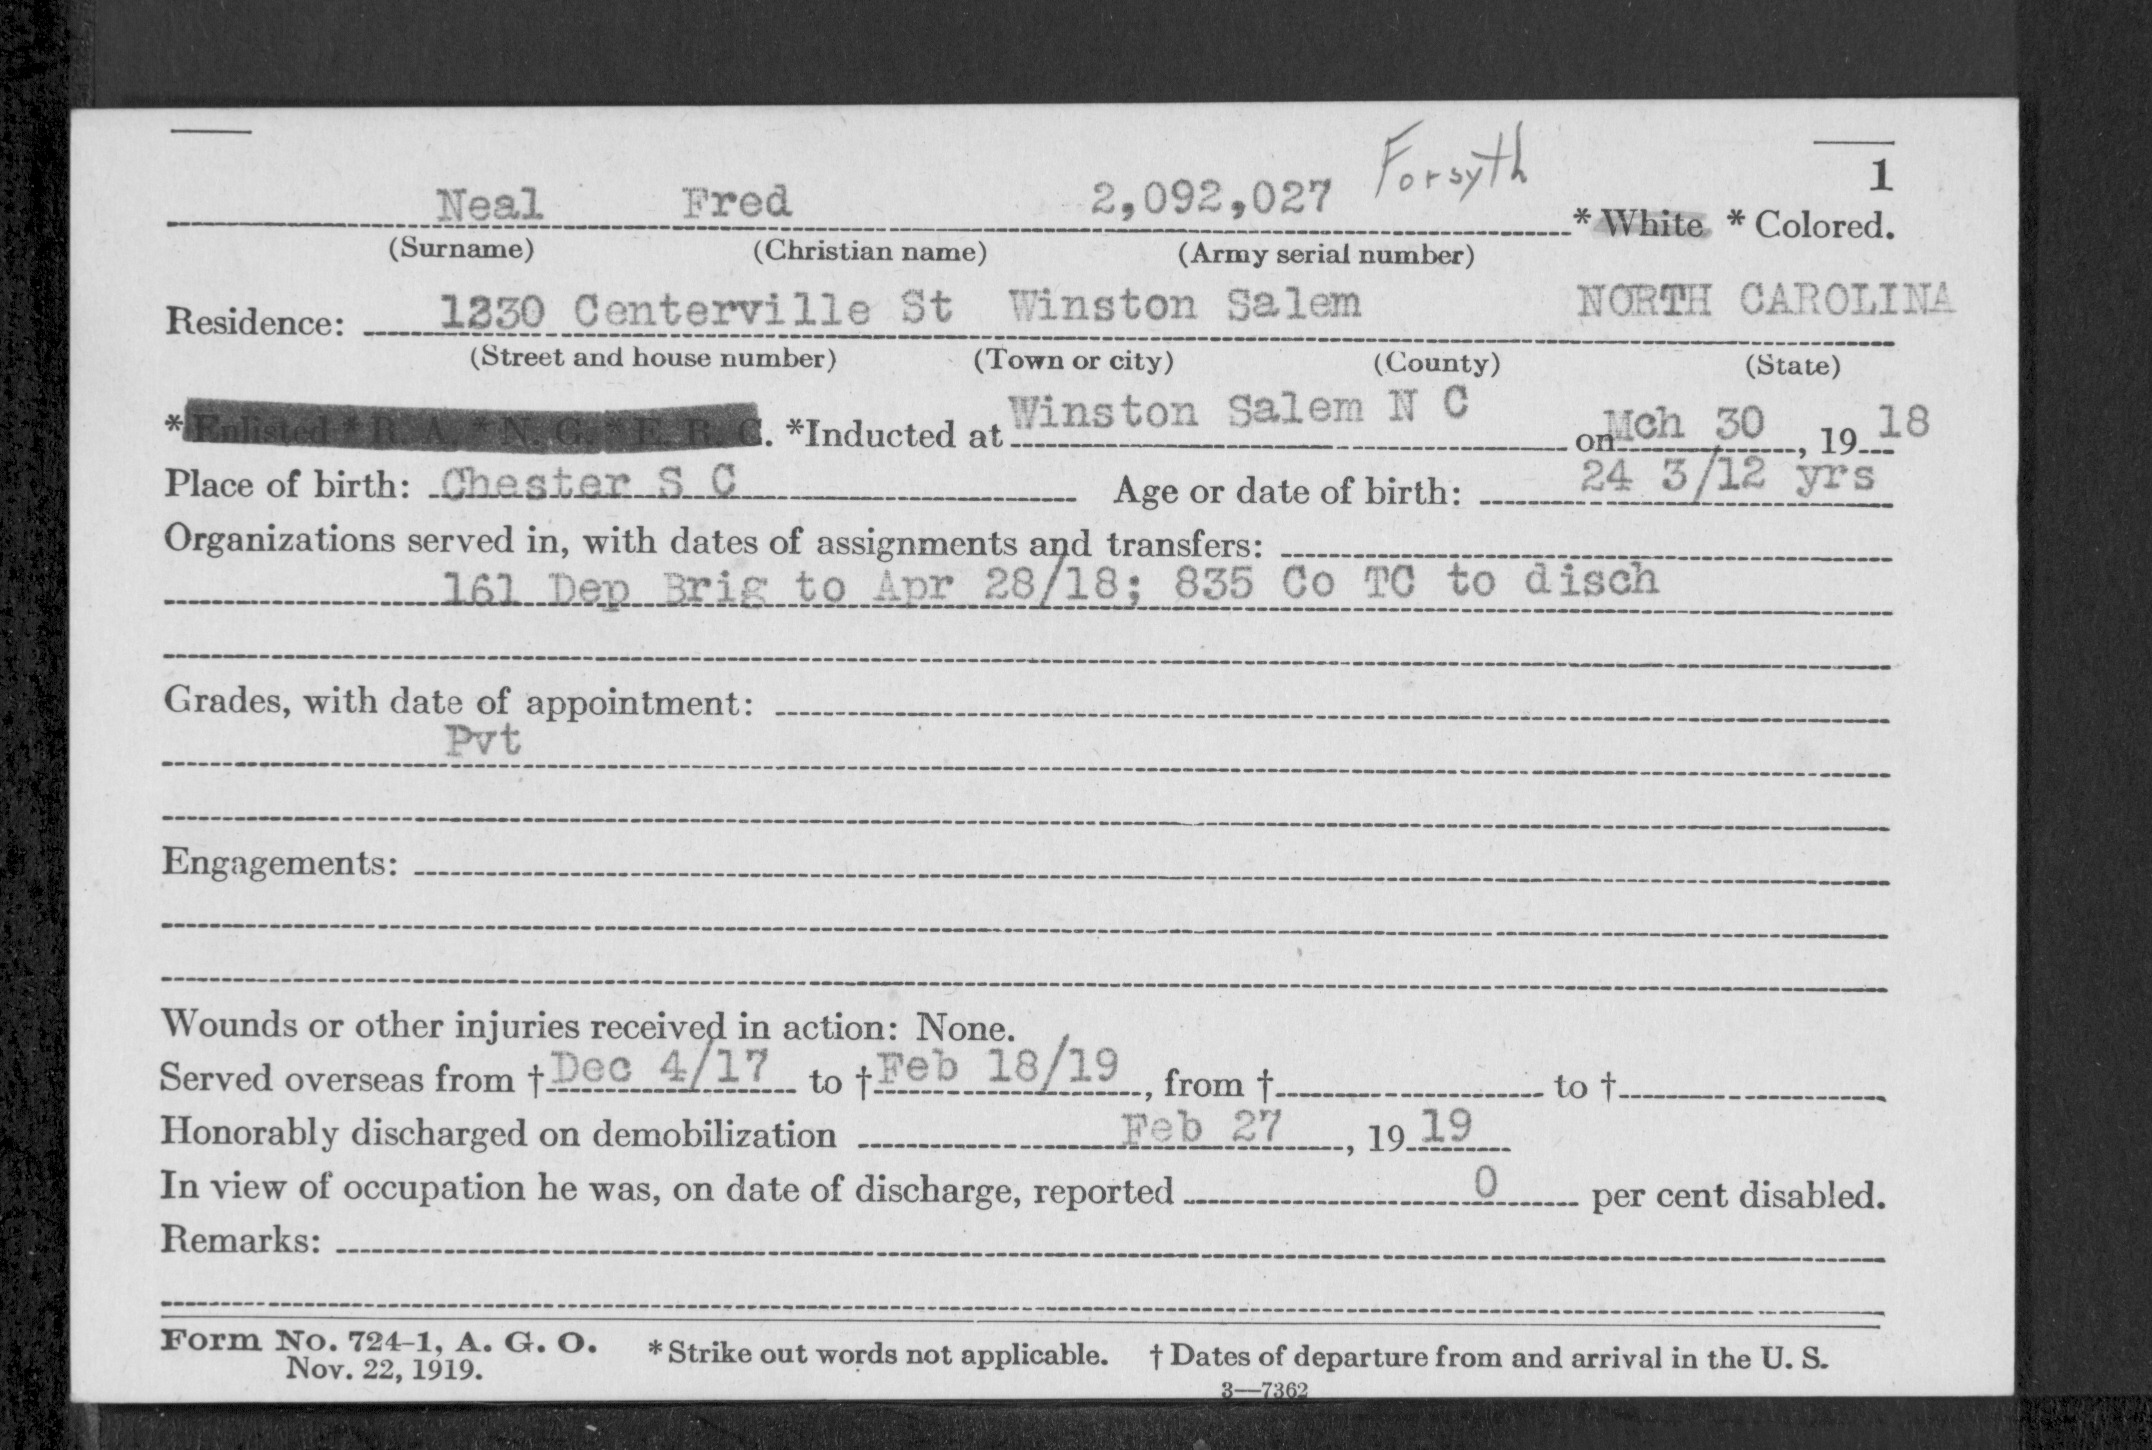 Forsyth
1
Neal Fred 2,092,027 * White * Colored.
(Surname) (Christian name) (Army serial number)
Residence: 1230 Centerville St Winston Salem NORTH CAROLINA
(Street and house number) (Town or city) (County) (State)
*Enlisted * R. A. * N. G. * E. R. C. *Inducted at Winston Salem N C on Mch 30, 19 18
Place of birth: Chester S C Age or date of birth: 24 3/12 yrs
Organizations served in, with dates of assignments and transfers:
161 Dep Brig to Apr 28/18; 835 Co TC to disch
Grades, with date of appointment:
Pvt
Engagements:
Wounds or other injuries received in action: None.
Served overseas from † Dec 4/17 to † Feb 18/19, from † to †
Honorably discharged on demobilization Feb 27, 19 19
In view of occupation he was, on date of discharge, reported 0 per cent disabled.
Remarks:
Form No. 724-1, A. G. O. * Strike out words not applicable. † Dates of departure from and arrival in the U. S.
Nov. 22, 1919.
3—7362